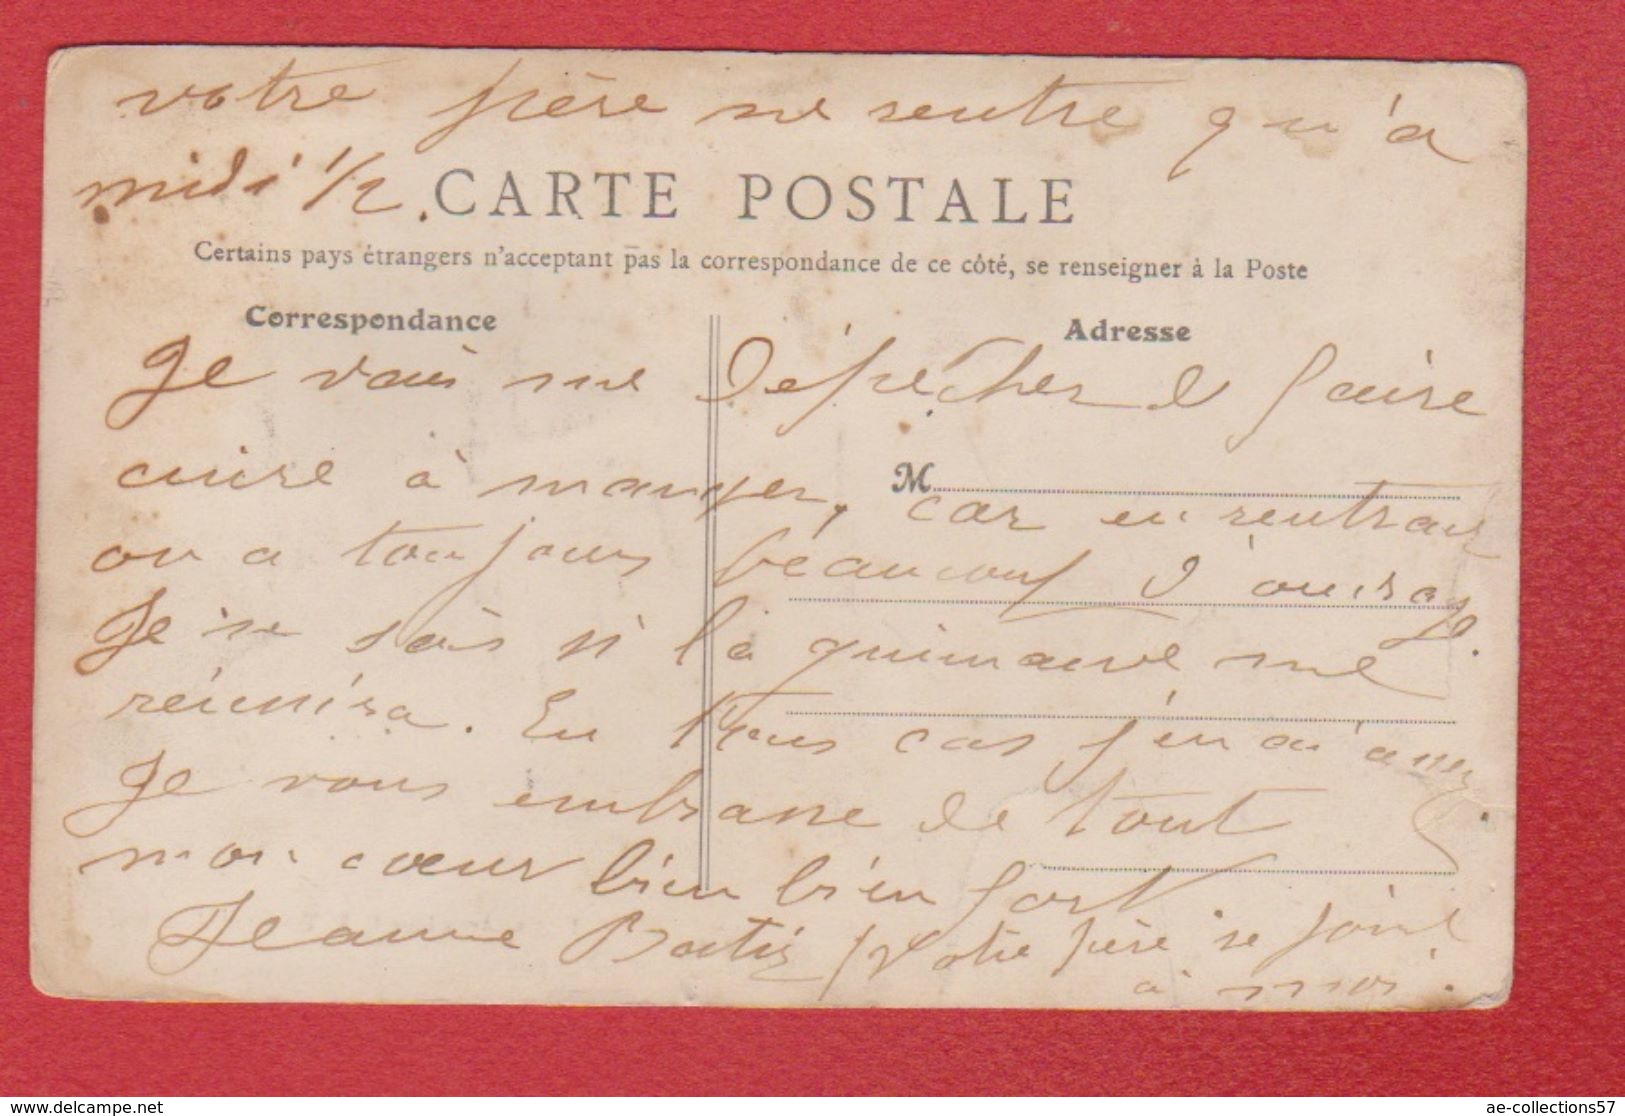 votre père ne rentre qu'à
midi 1/2.
CARTE POSTALE
Certains pays étrangers n'acceptant pas la correspondance de ce côté, se renseigner à la Poste
Correspondance
Adresse
Je vais me dépêcher de faire
M
cuire à manger, car en rentrant
on a toujours beaucoup d'ouvrage.
Je ne sais si la guimauve me
réunira. En tous cas j'en ai
Je vous embrasse de tout
mon cœur bien bien fort
Jeanne Votre père se joint
à moi.
ae-collections57